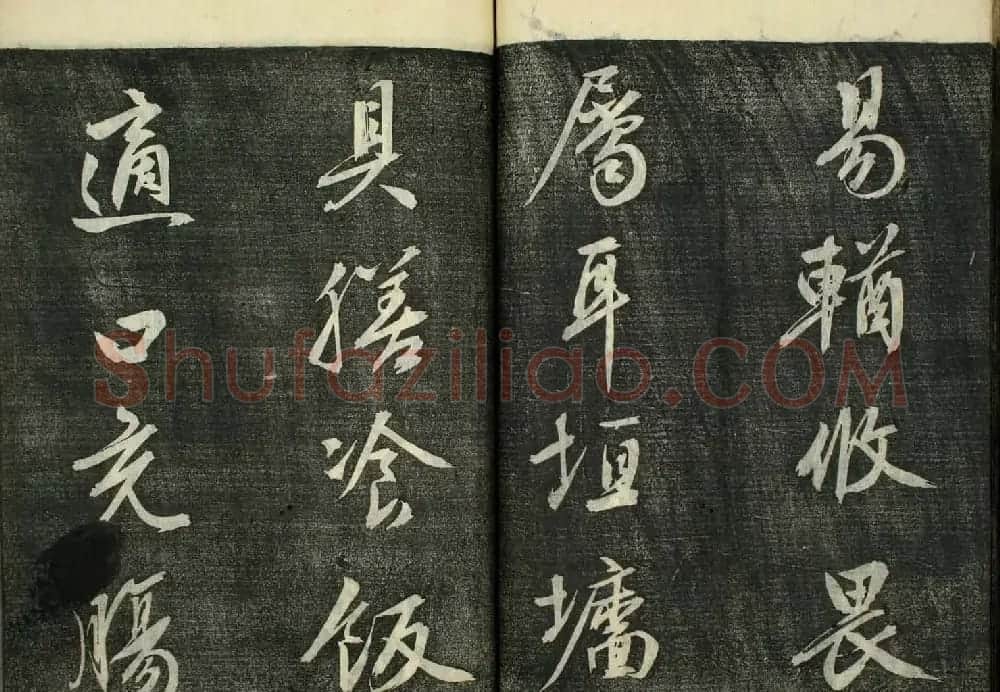 易輶攸畏
屬耳垣墻
具膳飡飯
適口充腸
Shufaziliao.COM